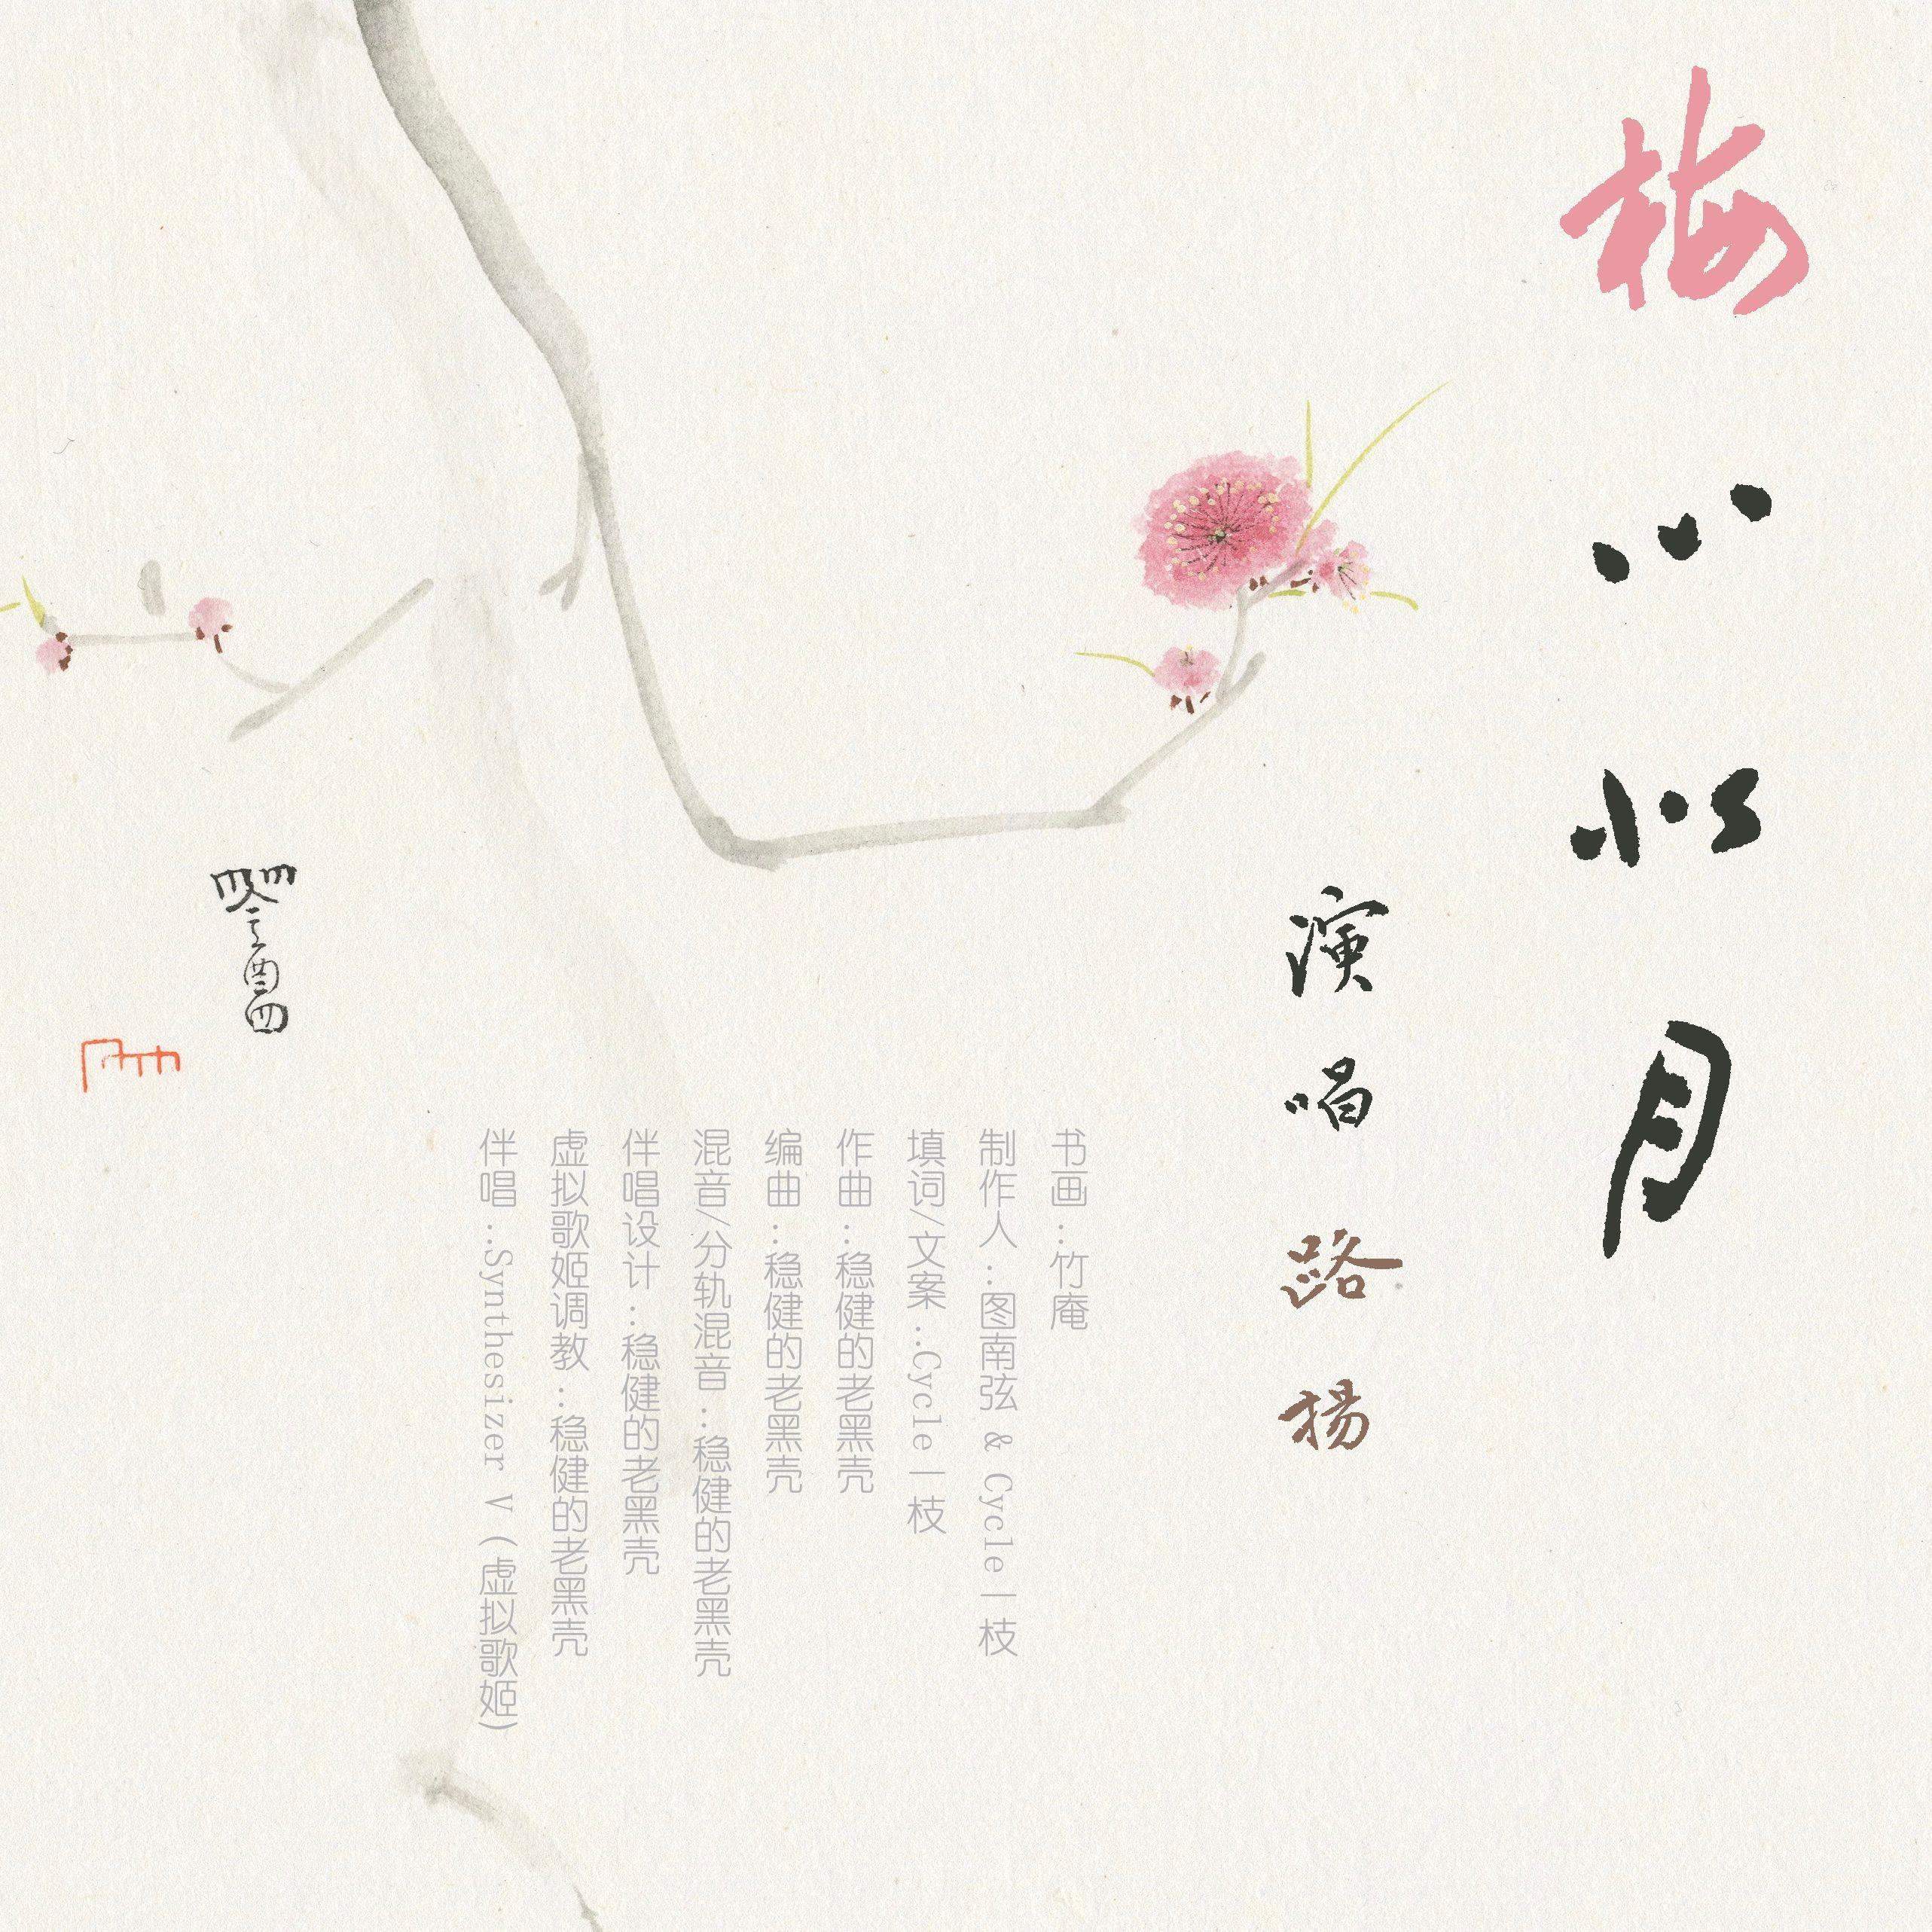 梅心似月
演唱 路揚
书画：竹庵
制作人：图南弦 & Cycle一枝
填词/文案：Cycle一枝
作曲：稳健的老黑壳
编曲：稳健的老黑壳
混音/分轨混音：稳健的老黑壳
伴唱设计：稳健的老黑壳
虚拟歌姬调教：稳健的老黑壳
伴唱：Synthesizer V（虚拟歌姬）